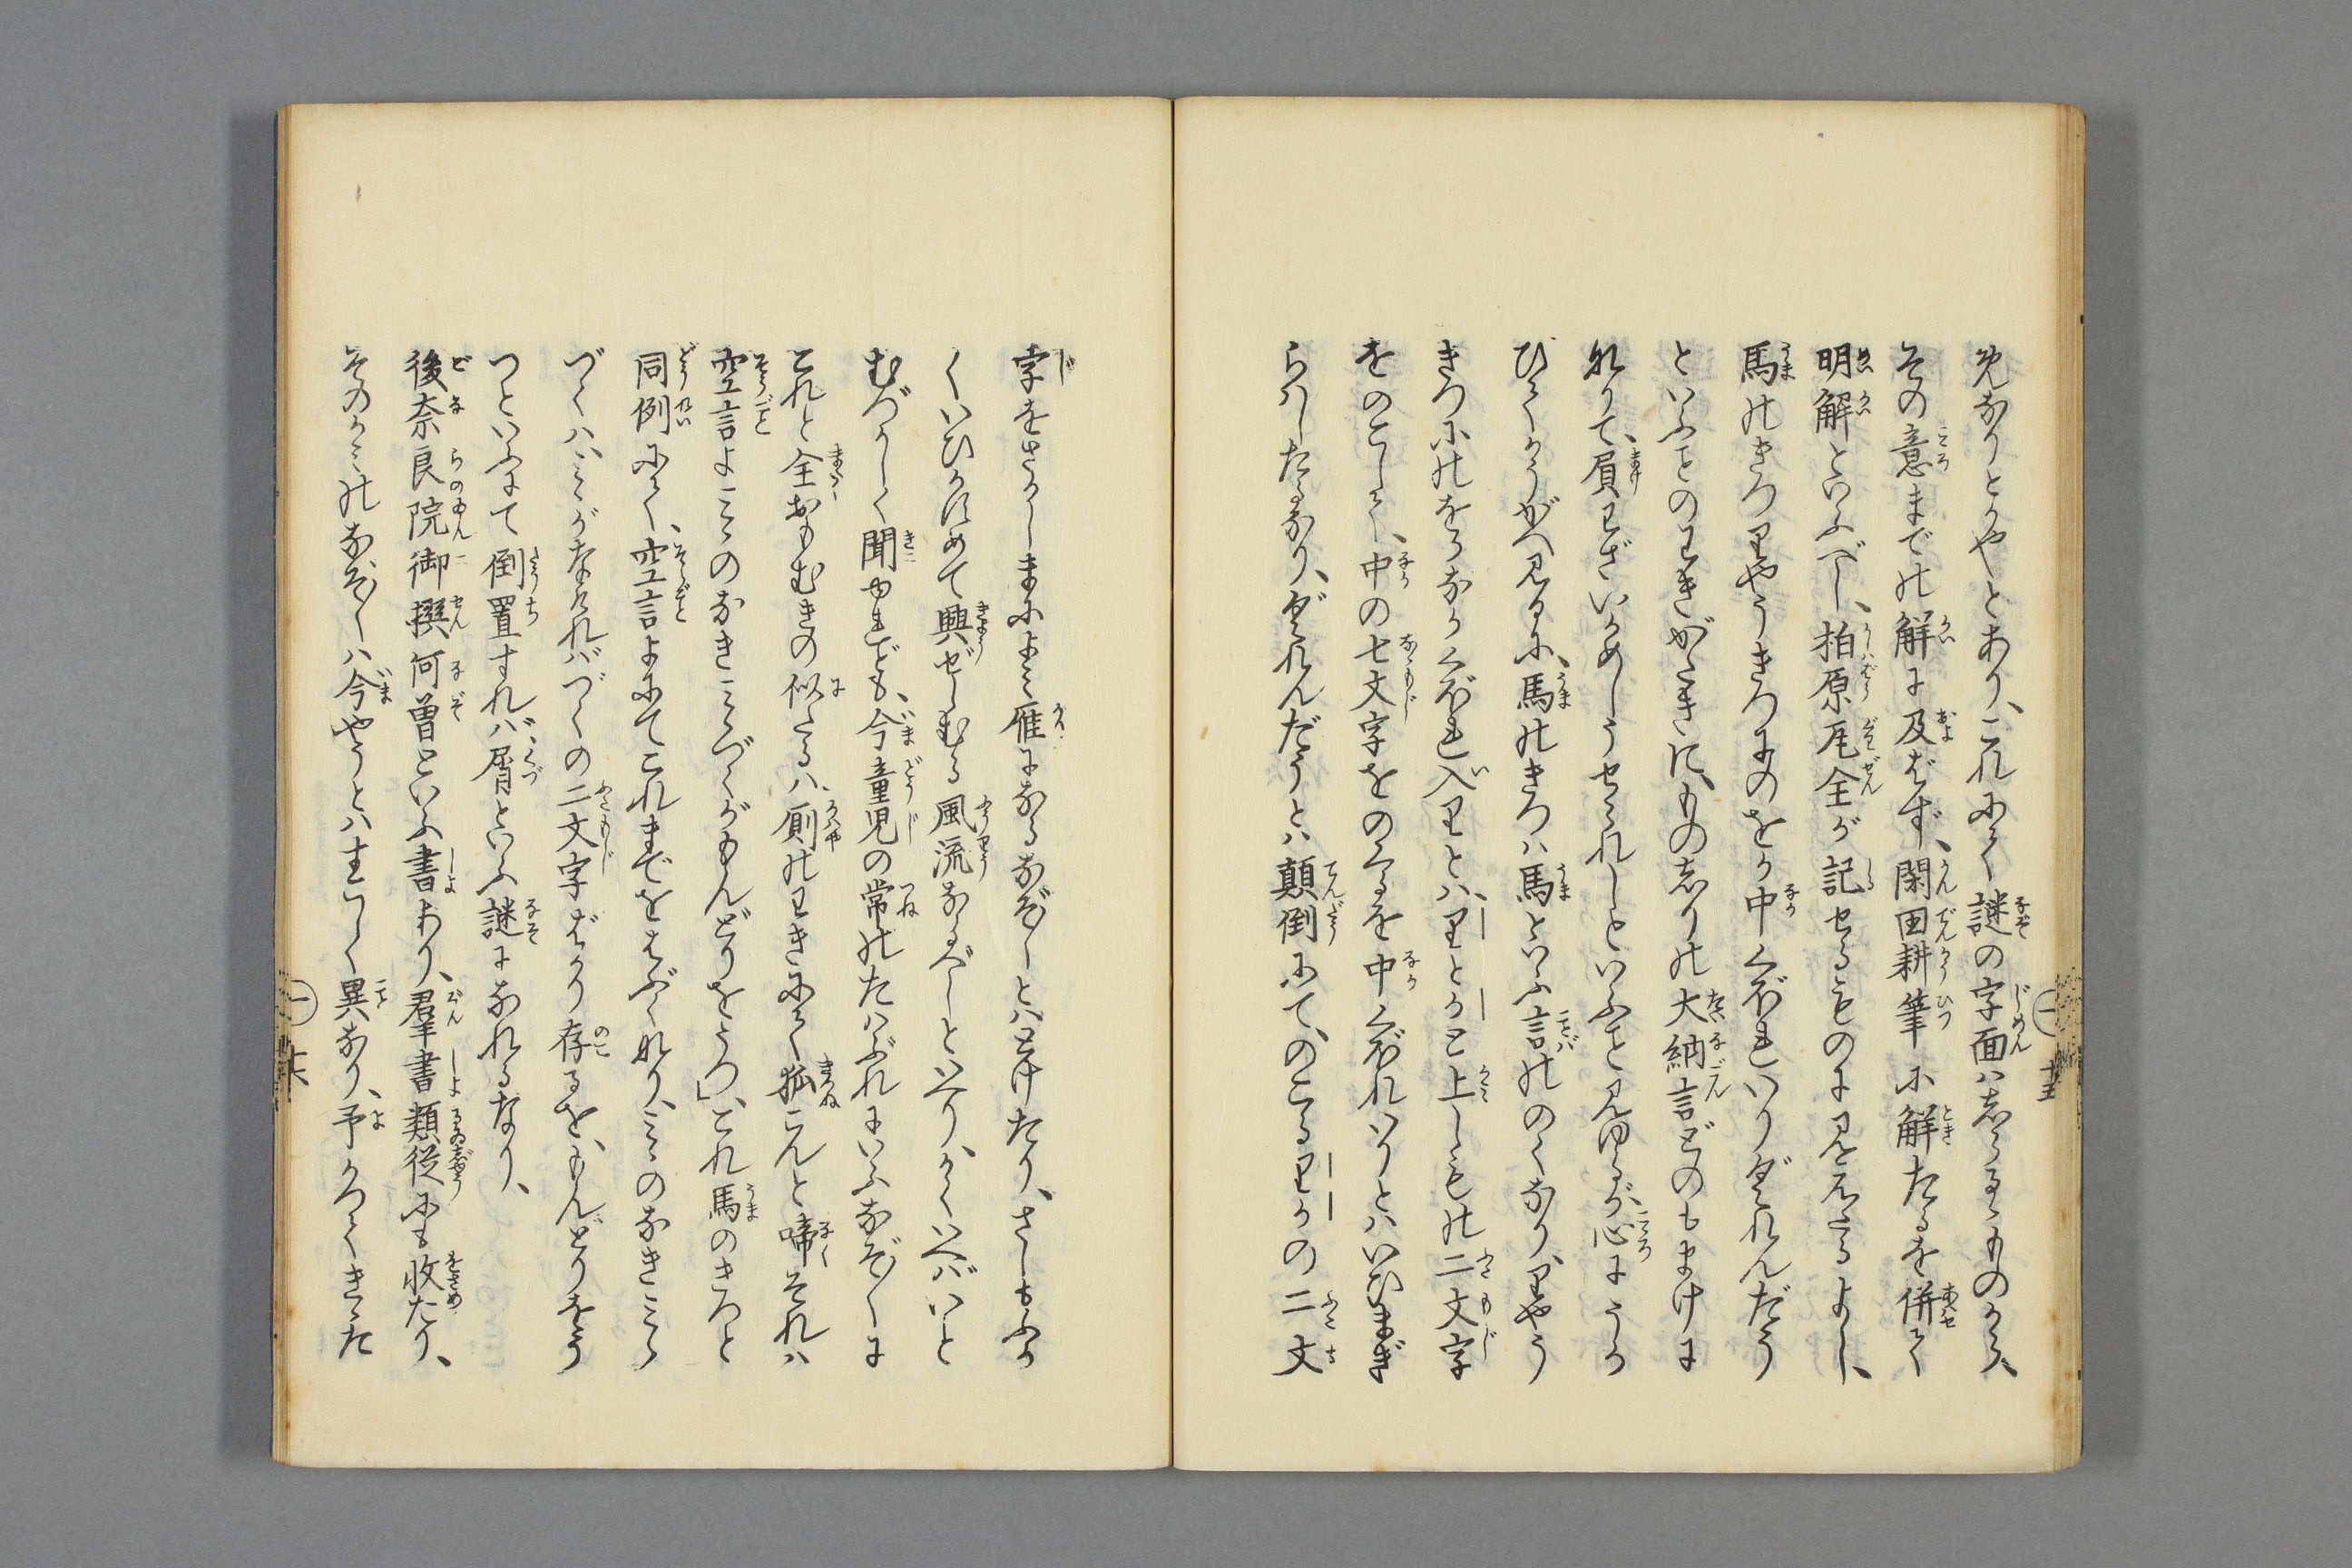 えありとうやとあり、これにて謎の字面はしらるゝものから、
その意までの解に及ばず、閑田耕筆に解たるを併て
明解といふべし、柏原瓦全が記せるものに見えたるよし、
馬のきつりやうきつにのをか中くぼれいりぐれんだう
といふことのときがたきに、もの志りの大納言どのもまけに
なりて、負わざいかめしうせられしといふこと見ゆるが、心にうか
びてかうがへ見るに、馬のきつハ馬といふ言のゝくなり、りやう
きつにのをかなかくぼれ入りとハ、りとかと上しもの二文字
をのこして、中の七文字をのくるを中くぼれいりとハいひまぎ
らハしたるなり、ぐれんだうとハ顛倒にて、のこるりかの二文
字をさかしまによミ雁になるなぞ〳〵とハとけたり、さしもふか
くいひかすめて興ぜしむる風流なるべしといへり、かくいへばいと
むづかしく聞ゆれども、今童児の常のたハぶれにいふなぞ〳〵に
これと全おもむきの似たるハ、厠のわきにて狐こんと啼それハ
空言よこゝのなきこゝろづくがもんどりをうつ」、これ馬のきつと
同例にて、空言よにてこれまでをはぶくなり、こゝのなきこゝろ
づくハ、こゝがなければづくの二文字ばかり存るを、もんどりをう
つといふにて倒置すれバ、屑といふ謎になれるなり、
後奈良院御撰何曽といふ書あり、羣書類従にも收たり、
そのかミのなぞ〳〵ハ今やうとハすこしく異なり、予かつてきゝた
一 十五
一 十六